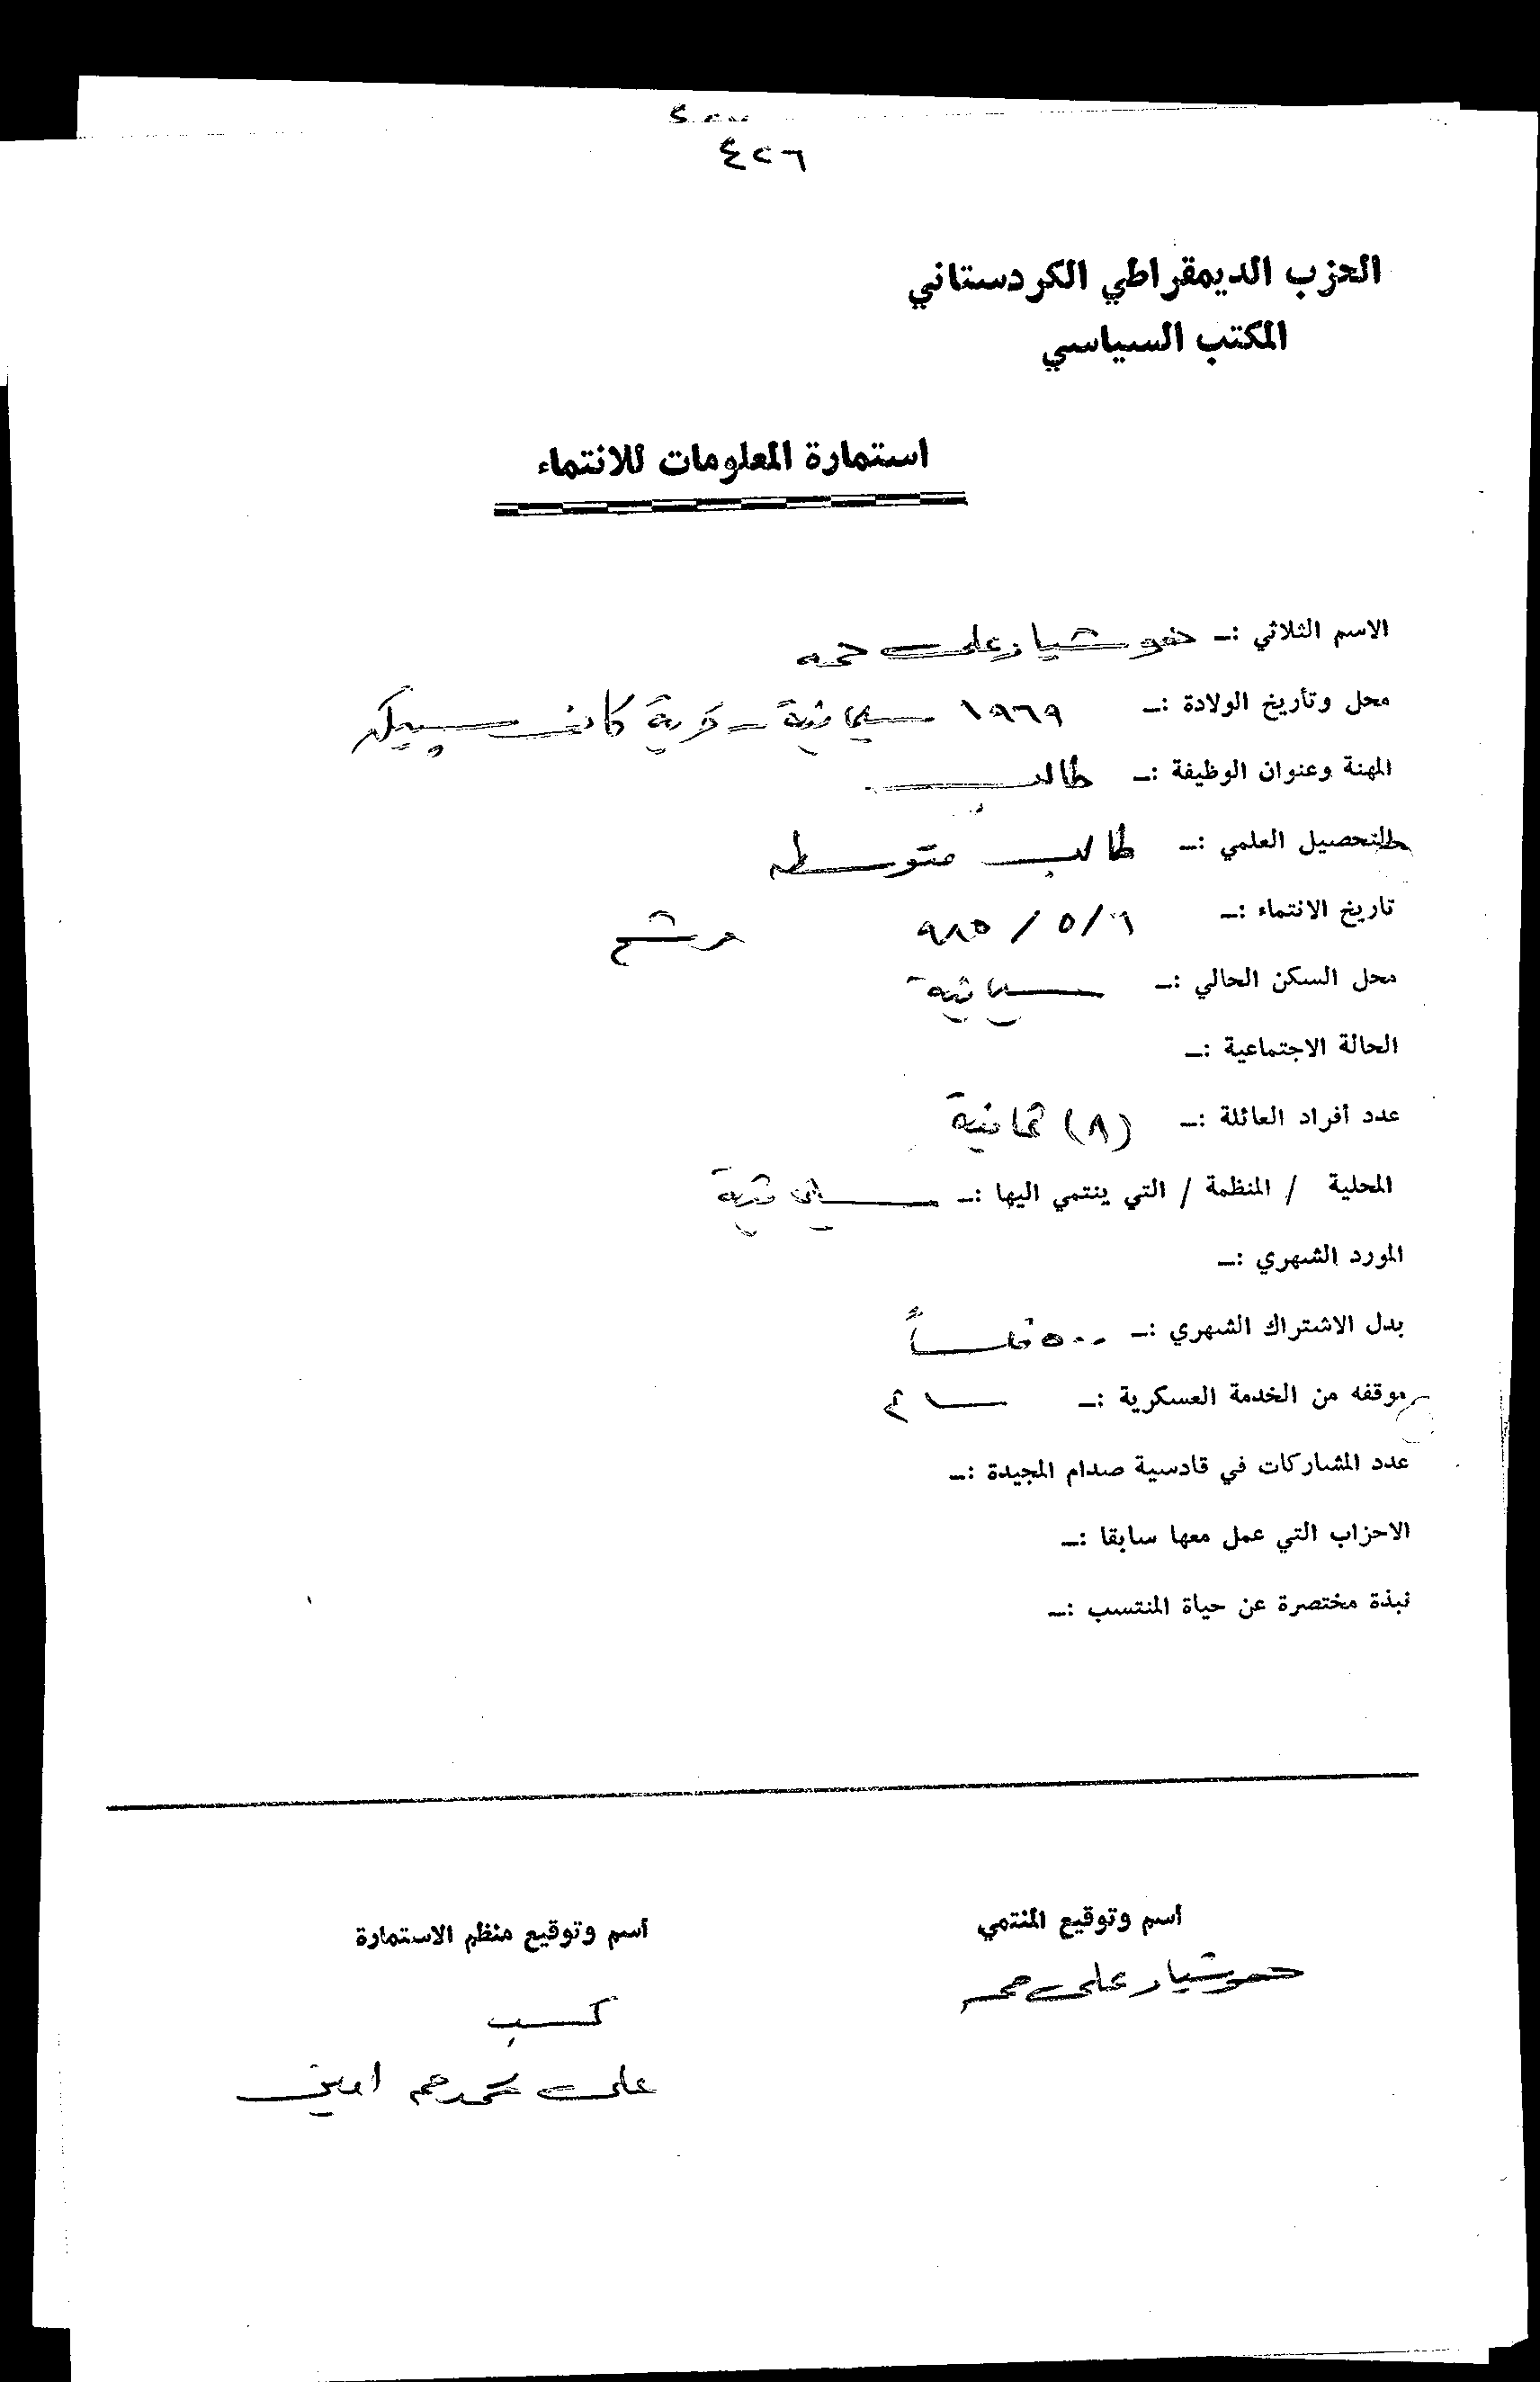 ٤٢٦
الحزب الديمقراطي الكردستاني
المكتب السياسي
استمارة المعلومات للانتماء
الاسم الثلاثي :ـ خوشيار علي حمه
محل وتأريخ الولادة :ـ ١٩٦٩ سليمانية ـ قرية كاني سپيكه
المهنة وعنوان الوظيفة :ـ طالب
التحصيل العلمي :ـ طالب متوسطه
تاريخ الانتماء :ـ ٦ / ٥ / ٩٨٥ مرشح
محل السكن الحالي :ـ سليمانية
الحالة الاجتماعية :ـ
عدد أفراد العائلة :ـ (٨) ثمانية
المحلية / المنظمة / التي ينتمي اليها :ـ سليمانية
المورد الشهري :ـ
بدل الاشتراك الشهري :ـ ٥٠٠ فلساً
موقفه من الخدمة العسكرية :ـ
عدد المشاركات في قادسية صدام المجيدة :ـ
الاحزاب التي عمل معها سابقا :ـ
نبذة مختصرة عن حياة المنتسب :ـ
اسم وتوقيع المنتمي
خوشيار علي حمه
اسم وتوقيع منظم الاستمارة
كسب
علي محمد امين